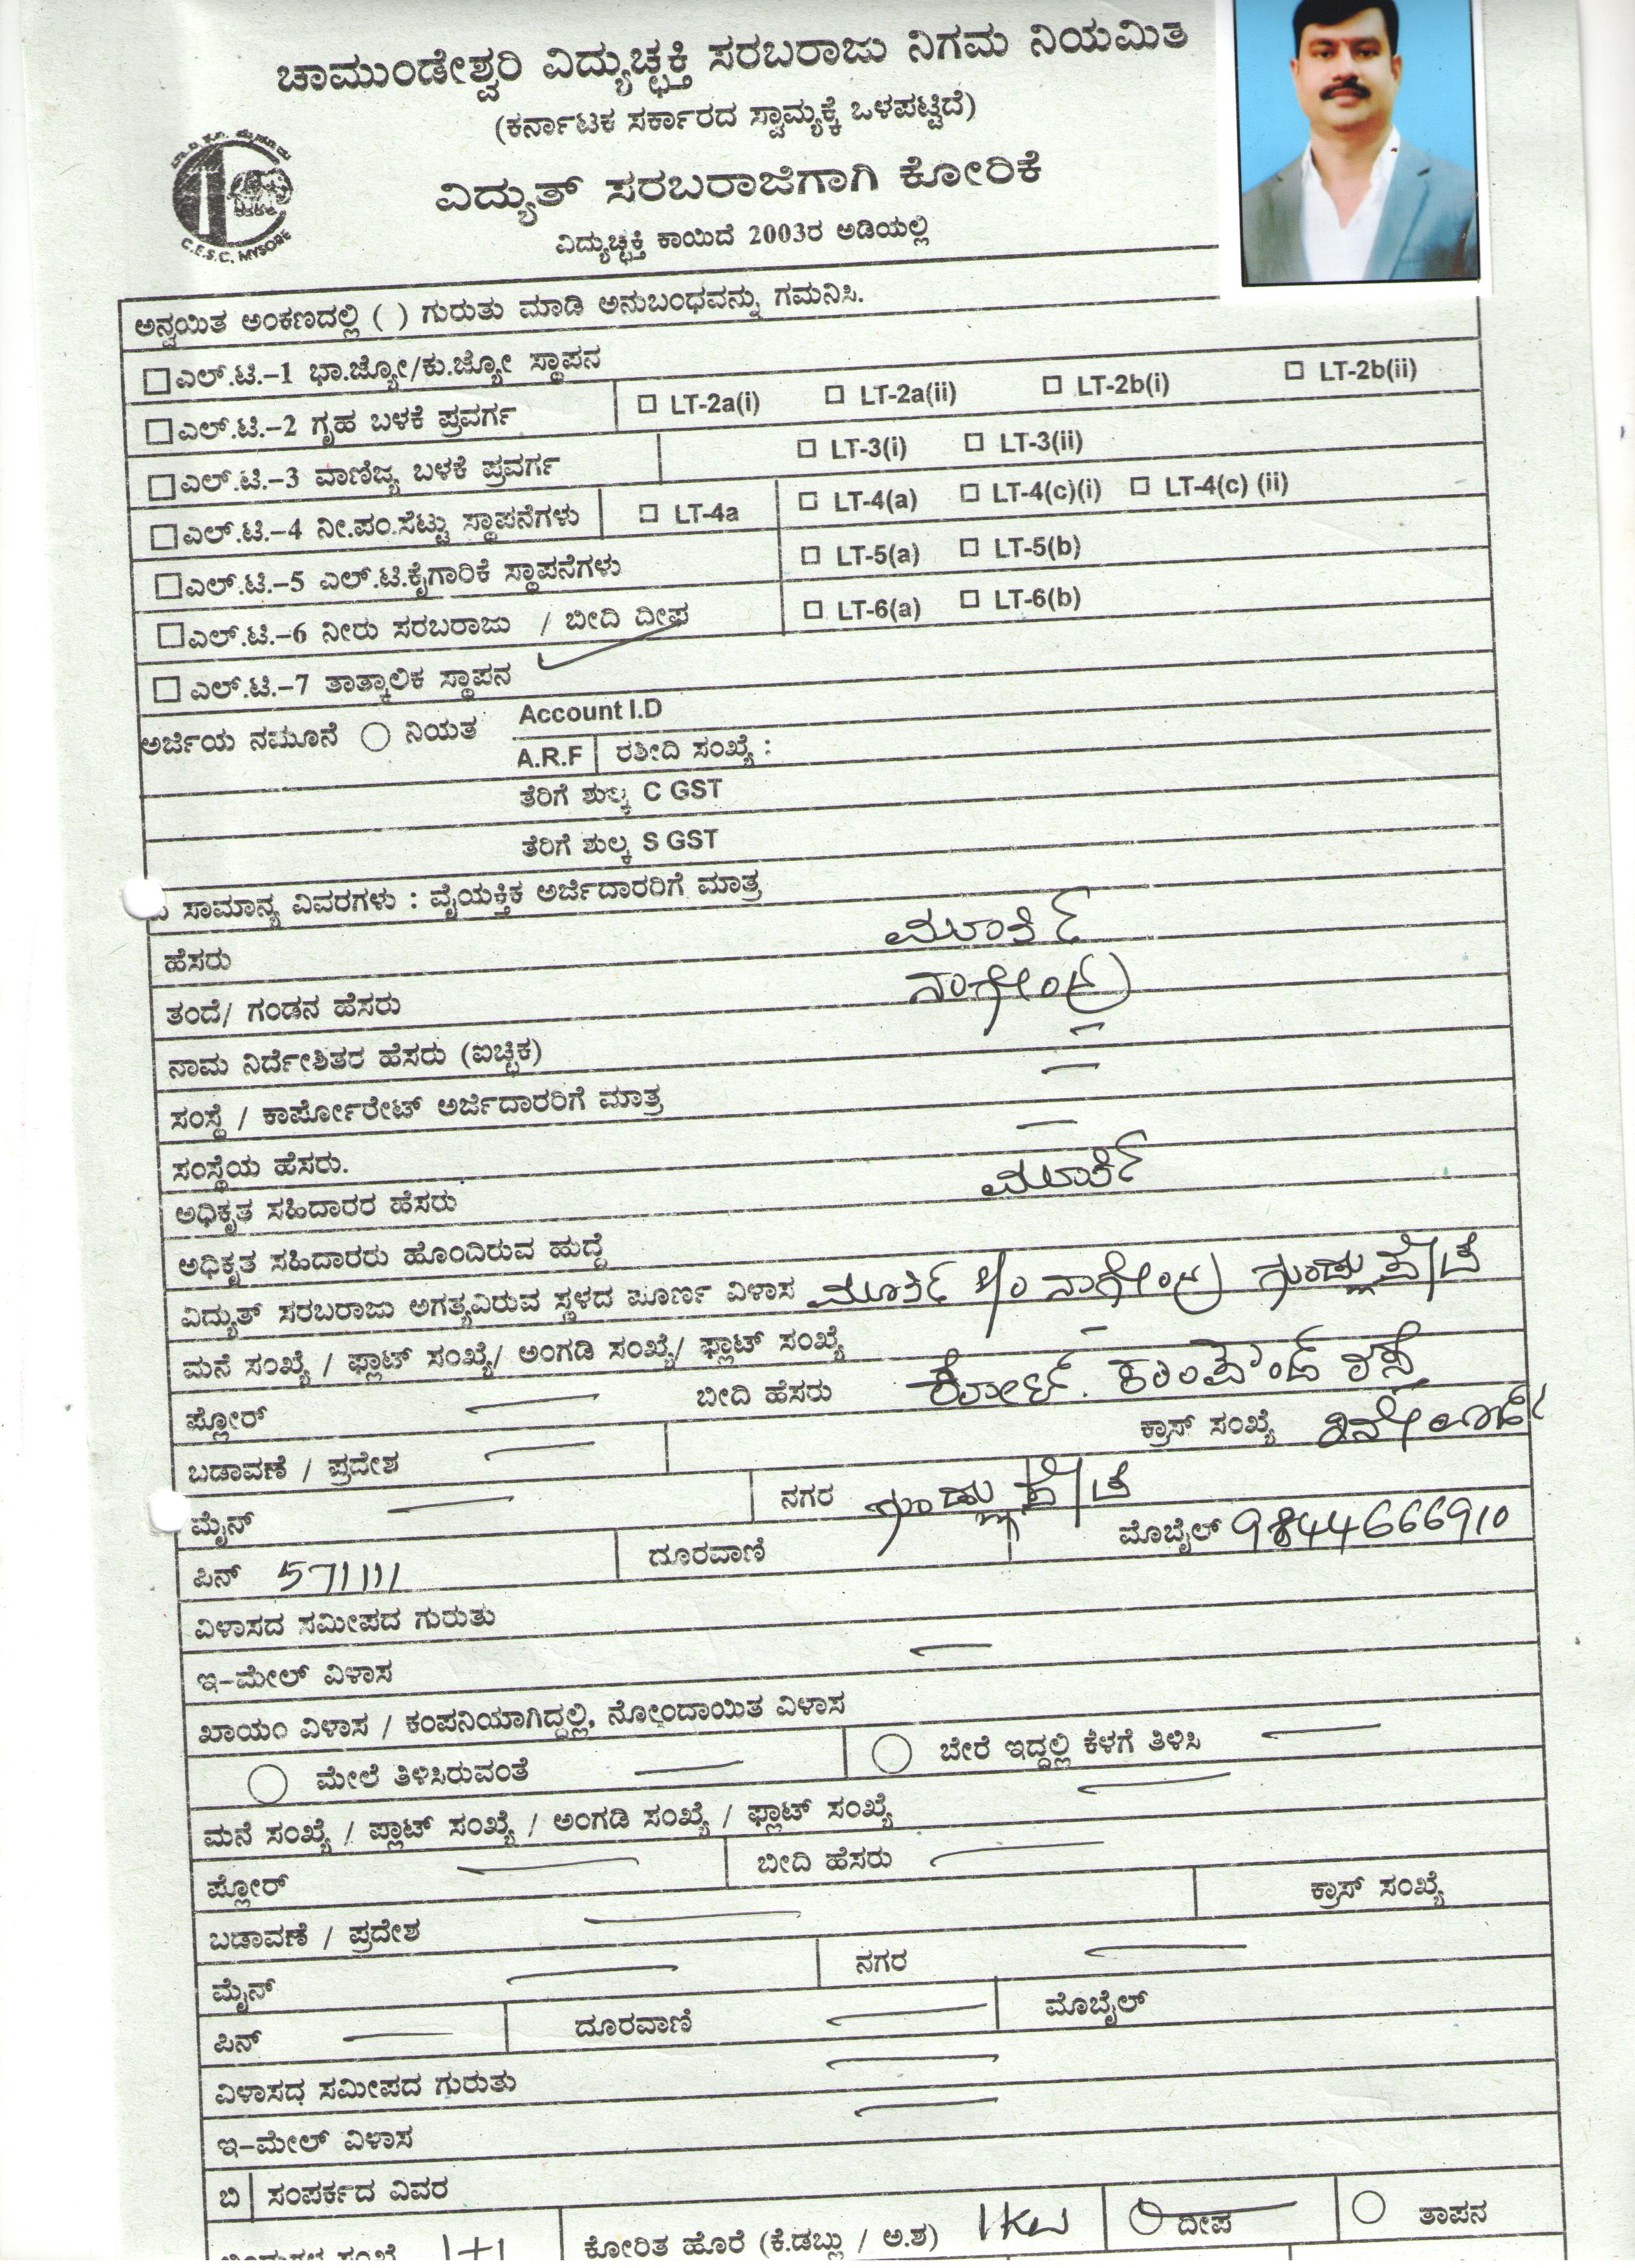 ಚಾಮುಂಡೇಶ್ವರಿ ವಿದ್ಯುಚ್ಛಕ್ತಿ ಸರಬರಾಜು ನಿಗಮ ನಿಯಮಿತ
(ಕರ್ನಾಟಕ ಸರ್ಕಾರದ ಸ್ವಾಮ್ಯಕ್ಕೆ ಒಳಪಟ್ಟಿದೆ)
ವಿದ್ಯುತ್ ಸರಬರಾಜಿಗಾಗಿ ಕೋರಿಕೆ
ವಿದ್ಯುಚ್ಛಕ್ತಿ ಕಾಯಿದೆ 2003ರ ಅಡಿಯಲ್ಲಿ
C.E.S.C. MYSORE
ಅನ್ವಯಿತ ಅಂಕಣದಲ್ಲಿ ( ) ಗುರುತು ಮಾಡಿ ಅನುಬಂಧವನ್ನು ಗಮನಿಸಿ.
ಎಲ್.ಟಿ.–1 ಭಾ.ಜ್ಯೋ/ಕು.ಜ್ಯೋ ಸ್ಥಾಪನ
ಎಲ್.ಟಿ.–2 ಗೃಹ ಬಳಕೆ ಪ್ರವರ್ಗ LT-2a(i) LT-2a(ii) LT-2b(i) LT-2b(ii)
ಎಲ್.ಟಿ.–3 ವಾಣಿಜ್ಯ ಬಳಕೆ ಪ್ರವರ್ಗ LT-3(i) LT-3(ii)
ಎಲ್.ಟಿ.–4 ನೀ.ಪಂ.ಸೆಟ್ಟು ಸ್ಥಾಪನೆಗಳು LT-4a LT-4(a) LT-4(c)(i) LT-4(c) (ii)
ಎಲ್.ಟಿ.–5 ಎಲ್.ಟಿ.ಕೈಗಾರಿಕೆ ಸ್ಥಾಪನೆಗಳು LT-5(a) LT-5(b)
ಎಲ್.ಟಿ.–6 ನೀರು ಸರಬರಾಜು / ಬೀದಿ ದೀಪ LT-6(a) LT-6(b)
ಎಲ್.ಟಿ.–7 ತಾತ್ಕಾಲಿಕ ಸ್ಥಾಪನ
ಅರ್ಜಿಯ ನಮೂನೆ ನಿಯತ Account I.D
A.R.F ರಶೀದಿ ಸಂಖ್ಯೆ :
ತೆರಿಗೆ ಶುಲ್ಕ C GST
ತೆರಿಗೆ ಶುಲ್ಕ S GST
ಸಾಮಾನ್ಯ ವಿವರಗಳು : ವೈಯಕ್ತಿಕ ಅರ್ಜಿದಾರರಿಗೆ ಮಾತ್ರ
ಹೆಸರು ಮೂರ್ತಿ
ತಂದೆ/ ಗಂಡನ ಹೆಸರು ನಾಗೇಂದ್ರ
ನಾಮ ನಿರ್ದೇಶಿತರ ಹೆಸರು (ಐಚ್ಛಿಕ)
ಸಂಸ್ಥೆ / ಕಾರ್ಪೋರೇಟ್ ಅರ್ಜಿದಾರರಿಗೆ ಮಾತ್ರ
ಸಂಸ್ಥೆಯ ಹೆಸರು.
ಅಧಿಕೃತ ಸಹಿದಾರರ ಹೆಸರು ಮೂರ್ತಿ
ಅಧಿಕೃತ ಸಹಿದಾರರು ಹೊಂದಿರುವ ಹುದ್ದೆ
ವಿದ್ಯುತ್ ಸರಬರಾಜು ಅಗತ್ಯವಿರುವ ಸ್ಥಳದ ಪೂರ್ಣ ವಿಳಾಸ ಮೂರ್ತಿ S/o ನಾಗೇಂದ್ರ ಗುಂಡ್ಲುಪೇಟೆ
ಮನೆ ಸಂಖ್ಯೆ / ಫ್ಲಾಟ್ ಸಂಖ್ಯೆ/ ಅಂಗಡಿ ಸಂಖ್ಯೆ/ ಫ್ಲಾಟ್ ಸಂಖ್ಯೆ
ಪ್ಲೋರ್ ಬೀದಿ ಹೆಸರು ಕೋರ್ಟ್. ಕಾಂಪೌಂಡ್ ರಸ್ತೆ
ಬಡಾವಣೆ / ಪ್ರದೇಶ ಕ್ರಾಸ್ ಸಂಖ್ಯೆ
ಮೈನ್ ನಗರ ಗುಂಡ್ಲುಪೇಟೆ
ಪಿನ್ 571111 ದೂರವಾಣಿ ಮೊಬೈಲ್ 9844666910
ವಿಳಾಸದ ಸಮೀಪದ ಗುರುತು
ಇ–ಮೇಲ್ ವಿಳಾಸ
ಖಾಯಂ ವಿಳಾಸ / ಕಂಪನಿಯಾಗಿದ್ದಲ್ಲಿ, ನೋಂದಾಯಿತ ವಿಳಾಸ
ಮೇಲೆ ತಿಳಿಸಿರುವಂತೆ ಬೇರೆ ಇದ್ದಲ್ಲಿ ಕೆಳಗೆ ತಿಳಿಸಿ
ಮನೆ ಸಂಖ್ಯೆ / ಪ್ಲಾಟ್ ಸಂಖ್ಯೆ / ಅಂಗಡಿ ಸಂಖ್ಯೆ / ಫ್ಲಾಟ್ ಸಂಖ್ಯೆ
ಪ್ಲೋರ್ ಬೀದಿ ಹೆಸರು
ಬಡಾವಣೆ / ಪ್ರದೇಶ ಕ್ರಾಸ್ ಸಂಖ್ಯೆ
ಮೈನ್ ನಗರ
ಪಿನ್ ದೂರವಾಣಿ ಮೊಬೈಲ್
ವಿಳಾಸದ ಸಮೀಪದ ಗುರುತು
ಇ–ಮೇಲ್ ವಿಳಾಸ
ಬಿ ಸಂಪರ್ಕದ ವಿವರ
1+1 ಕೋರಿತ ಹೊರೆ (ಕೆ.ಡಬ್ಲು / ಅ.ಶ) 1KW ದೀಪ ತಾಪನ